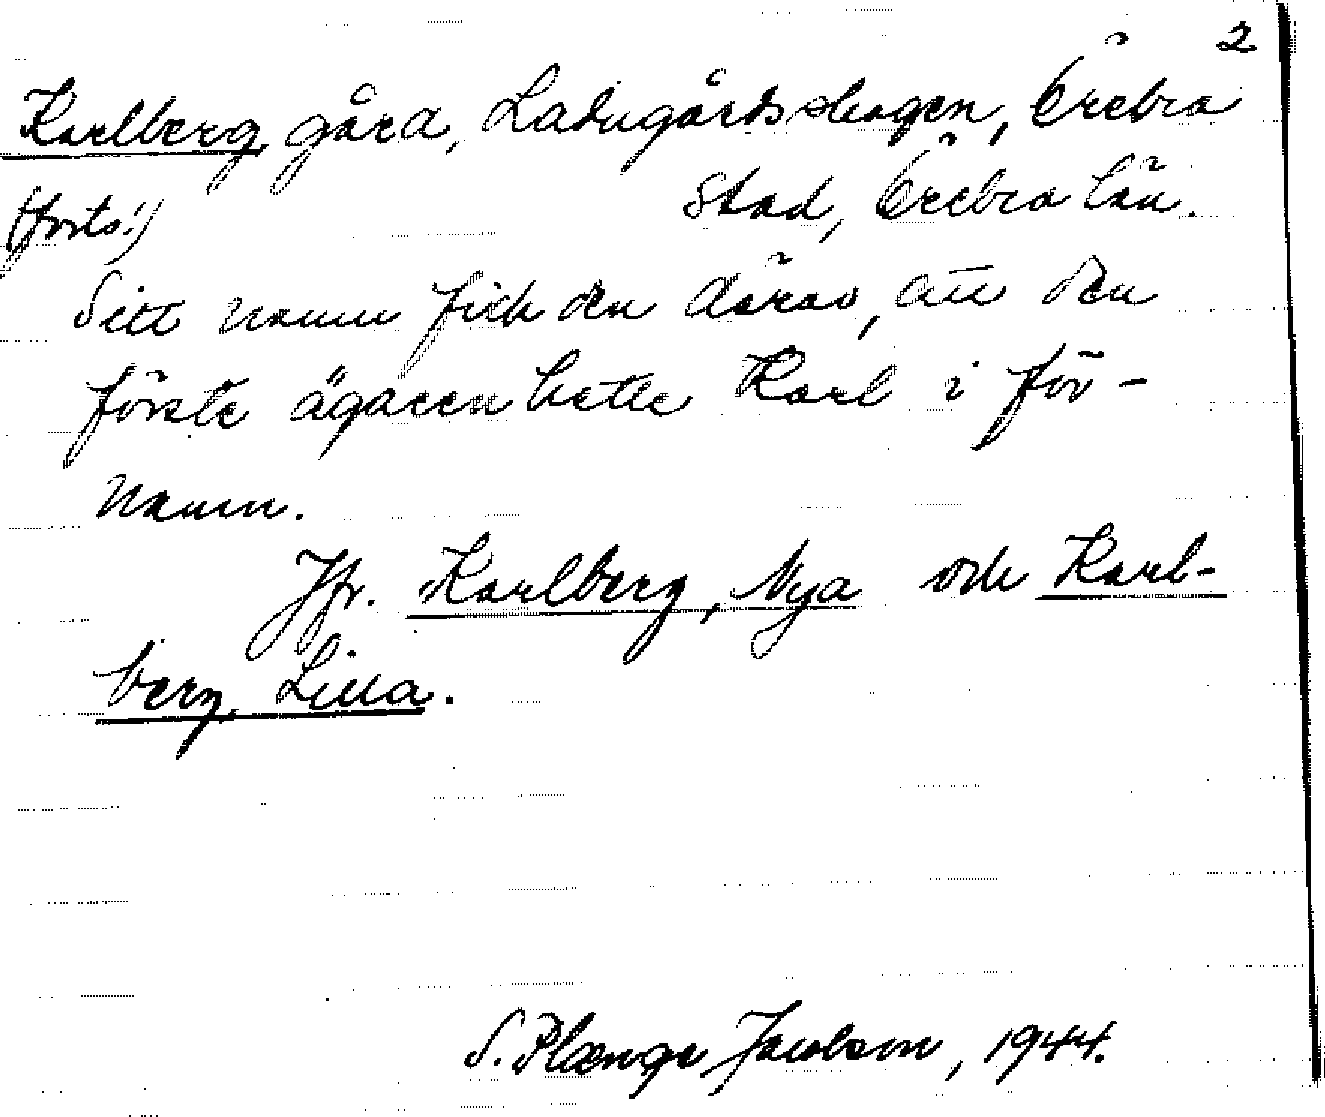 2
Karlberg, gård, Ladugårdsskogen, Örebro
(forts.)
stad, Örebro län.
Sitt namn fick den därav, att den
förste ägaren hette Karl i för-
namn.
Jfr. Karlberg, Nya och Karl-
berg, Lilla.
S. Plænge Jacobson, 1944.